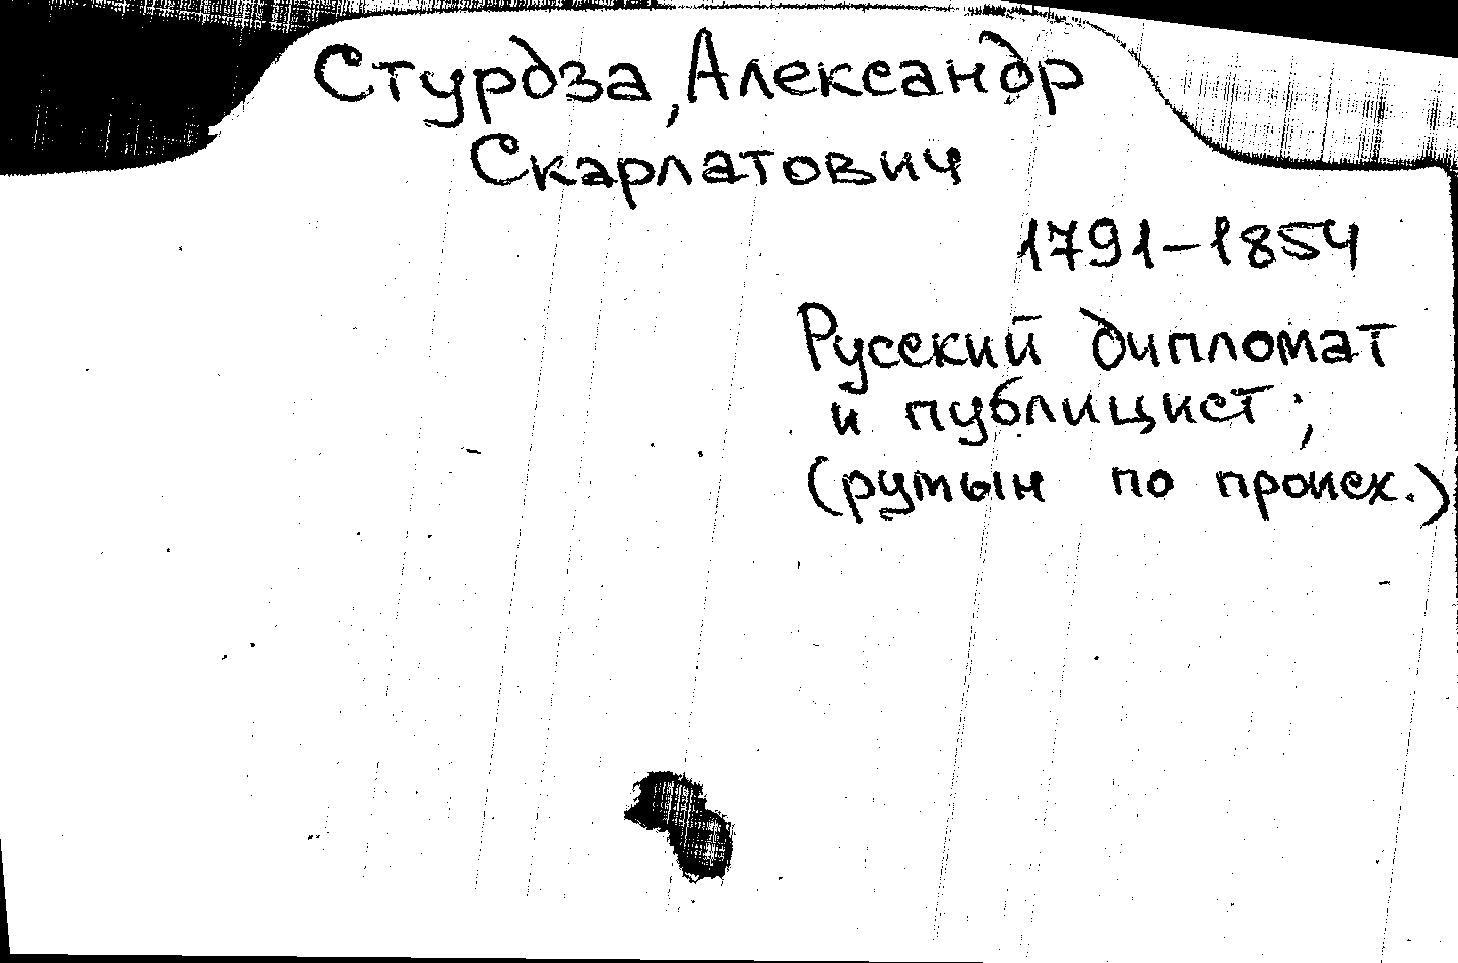 Стурдза, Александр
Скарлатович
1791-1854
Русский дипломат
и публицист;
(румын по происх.)